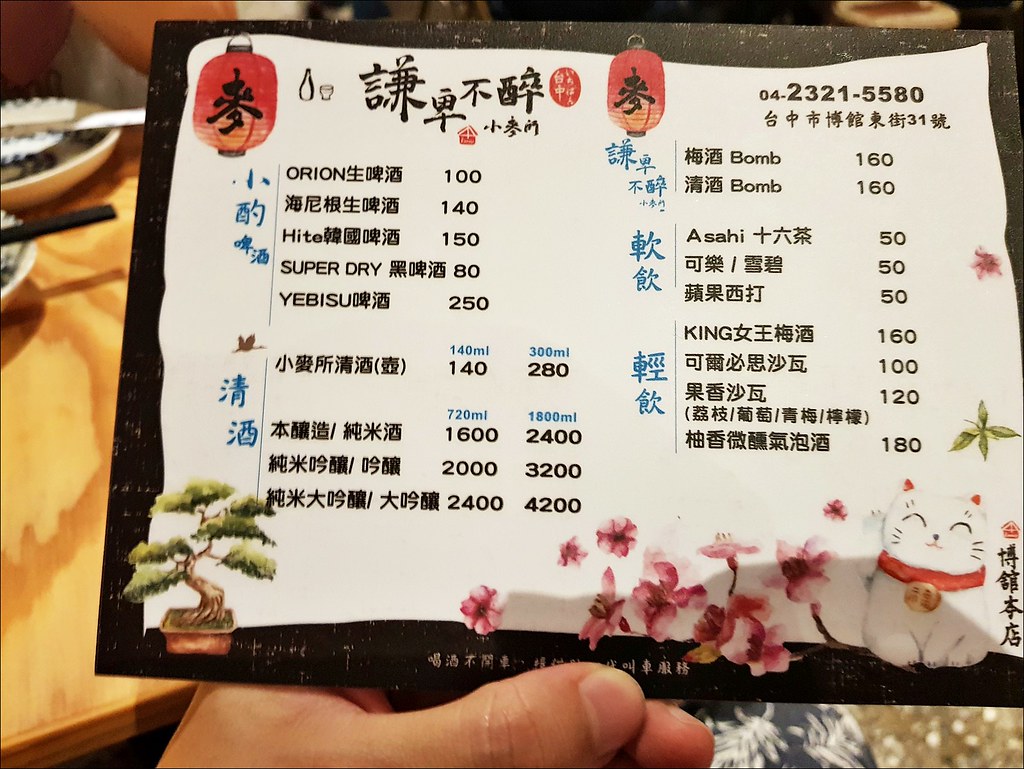 麥
謙卑不醉
台中
いちばん
小麥所
麥
04-2321-5580
台中市博館東街31號
小酌
啤酒
ORION生啤酒 100
海尼根生啤酒 140
Hite韓國啤酒 150
SUPER DRY 黑啤酒 80
YEBISU啤酒 250
清酒
140ml 300ml
小麥所清酒(壺) 140 280
720ml 1800ml
本釀造/ 純米酒 1600 2400
純米吟釀/ 吟釀 2000 3200
純米大吟釀/ 大吟釀 2400 4200
謙卑
不醉
小麥所
梅酒 Bomb 160
清酒 Bomb 160
軟飲
Asahi 十六茶 50
可樂 / 雪碧 50
蘋果西打 50
輕飲
KING女王梅酒 160
可爾必思沙瓦 100
果香沙瓦 120
(荔枝/葡萄/青梅/檸檬)
柚香微醺氣泡酒 180
博館本店
喝酒不開車、 代叫車服務